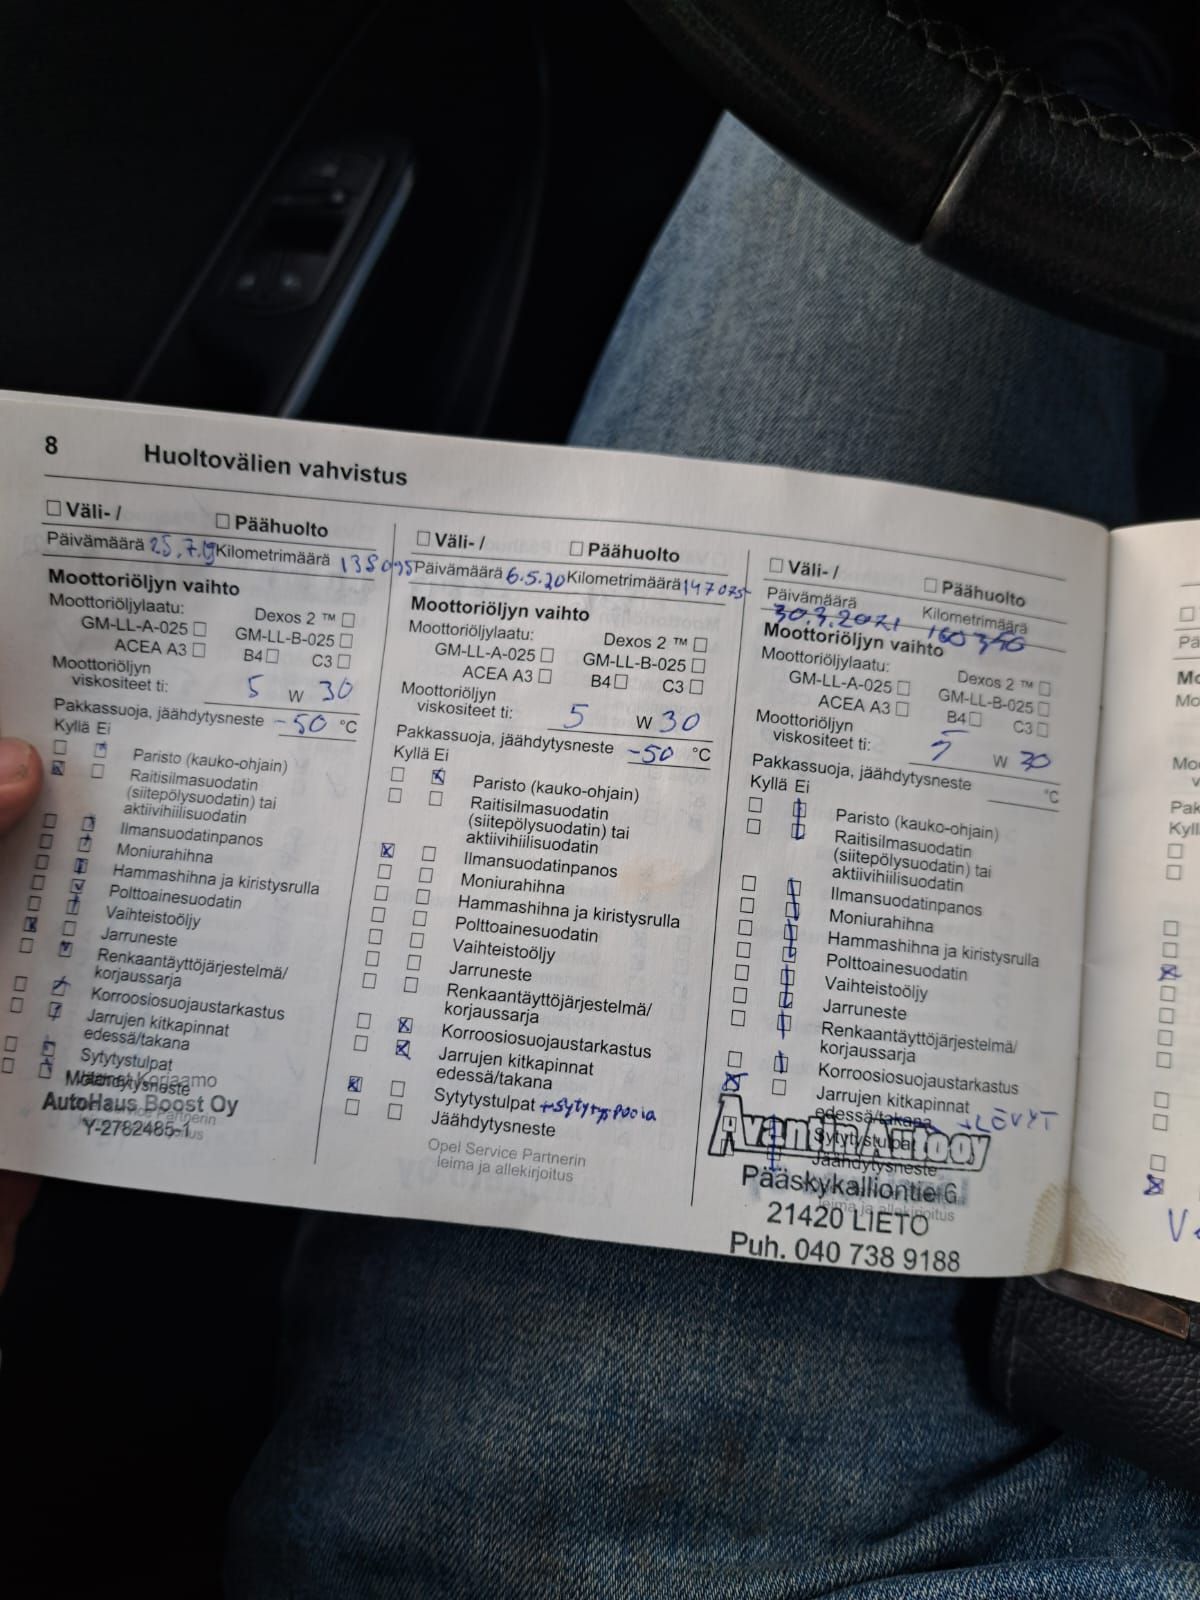 8 Huoltovälien vahvistus
☐ Väli- / ☐ Päähuolto
Päivämäärä 25.7.19 Kilometrimäärä 138095
Moottoriöljyn vaihto
Moottoriöljylaatu: Dexos 2 ™ ☐
GM-LL-A-025 ☐ GM-LL-B-025 ☐
ACEA A3 ☐ B4 ☐ C3 ☐
Moottoriöljyn
viskositeet ti: 5 W 30
Pakkassuoja, jäähdytysneste -50 °C
Kyllä Ei
Paristo (kauko-ohjain)
Raitisilmasuodatin
(siitepölysuodatin) tai
aktiivihiilisuodatin
Ilmansuodatinpanos
Moniurahihna
Hammashihna ja kiristysrulla
Polttoainesuodatin
Vaihteistoöljy
Jarruneste
Renkaantäyttöjärjestelmä/
korjaussarja
Korroosiosuojaustarkastus
Jarrujen kitkapinnat
edessä/takana
Sytytystulpat
Jäähdytysneste
AutoHaus Boost Oy
Y-2782485-1
☐ Väli- / ☐ Päähuolto
Päivämäärä 6.5.20 Kilometrimäärä 147075
Moottoriöljyn vaihto
Moottoriöljylaatu: Dexos 2 ™ ☐
GM-LL-A-025 ☐ GM-LL-B-025 ☐
ACEA A3 ☐ B4 ☐ C3 ☐
Moottoriöljyn
viskositeet ti: 5 W 30
Pakkassuoja, jäähdytysneste -50 °C
Kyllä Ei
Paristo (kauko-ohjain)
Raitisilmasuodatin
(siitepölysuodatin) tai
aktiivihiilisuodatin
Ilmansuodatinpanos
Moniurahihna
Hammashihna ja kiristysrulla
Polttoainesuodatin
Vaihteistoöljy
Jarruneste
Renkaantäyttöjärjestelmä/
korjaussarja
Korroosiosuojaustarkastus
Jarrujen kitkapinnat
edessä/takana
Sytytystulpat + sytytyspuola
Jäähdytysneste
Opel Service Partnerin
leima ja allekirjoitus
☐ Väli- / ☐ Päähuolto
Päivämäärä Kilometrimäärä
30.3.2021 160350
Moottoriöljyn vaihto
Moottoriöljylaatu: Dexos 2 ™ ☐
GM-LL-A-025 ☐ GM-LL-B-025 ☐
ACEA A3 ☐ B4 ☐ C3 ☐
Moottoriöljyn
viskositeet ti: 5 W 30
Pakkassuoja, jäähdytysneste °C
Kyllä Ei
Paristo (kauko-ohjain)
Raitisilmasuodatin
(siitepölysuodatin) tai
aktiivihiilisuodatin
Ilmansuodatinpanos
Moniurahihna
Hammashihna ja kiristysrulla
Polttoainesuodatin
Vaihteistoöljy
Jarruneste
Renkaantäyttöjärjestelmä/
korjaussarja
Korroosiosuojaustarkastus
Jarrujen kitkapinnat
edessä/takana + LEVYT
Sytytystulpat
Jäähdytysneste
Avantin Auto oy
Pääskykalliontie 6
21420 LIETO
Puh. 040 738 9188